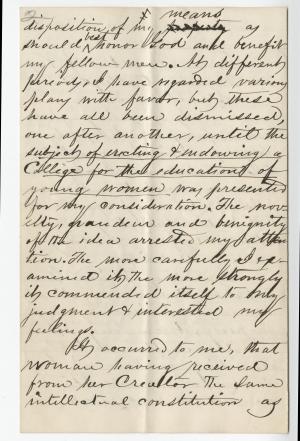 means
disposition of my property as
should best honor God and benefit
my fellow-men. At different
periods, I have regarded various
plans with favor, but these
have all been dismissed,
one after another, until the
subject of erecting & endowing a
College for the education of
young women was presented
for my consideration. The nov-
elty, grandeur and benignity
of the idea arrested my atten-
tion. The more carefully I ex-
amined it, the more strongly
it commended itself to my
judgment & interested my
feelings.
It occurred to me, that
woman having received
from her Creator the same
intellectual constitution as